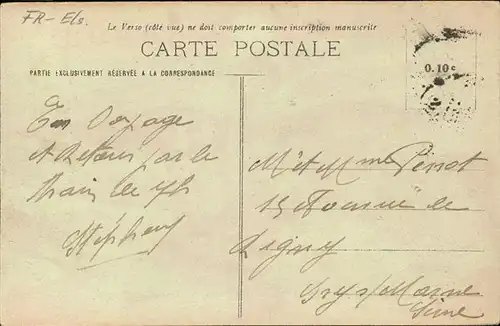 FR- Els.
Le Verso (côté vue) ne doit comporter aucune inscription manuscrite
CARTE POSTALE
0.10 c
PARTIE EXCLUSIVEMENT RÉSERVÉE A LA CORRESPONDANCE
En Voyage
et Retour par le
train de 7h
Stéphany
M et Mme Perrot
15 Avenue de
Ligny
Bry s/ Marne
Seine